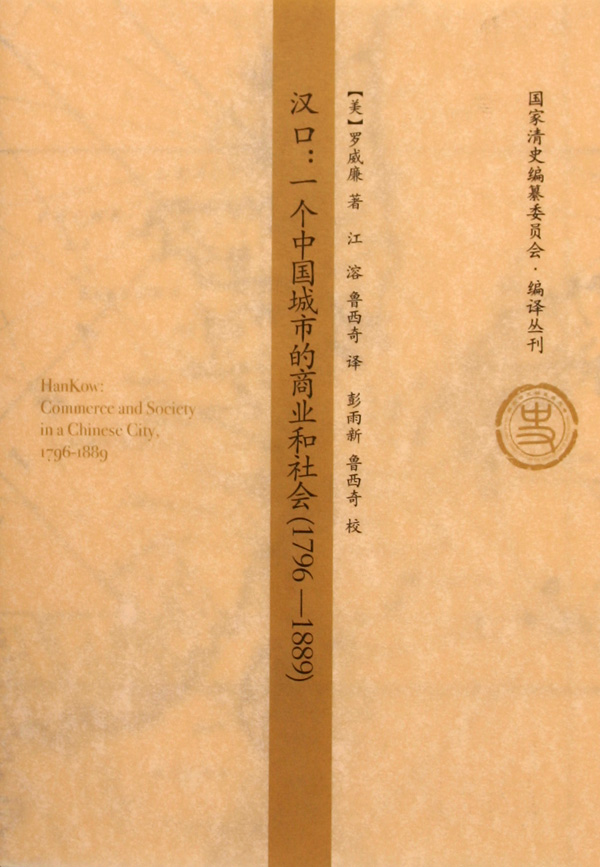 国家清史编纂委员会·编译丛刊
【美】罗威廉 著 江 溶 鲁西奇 译 彭雨新 鲁西奇 校
汉口：一个中国城市的商业和社会(1796—1889)
HanKow:
Commerce and Society
in a Chinese City,
1796-1889
史